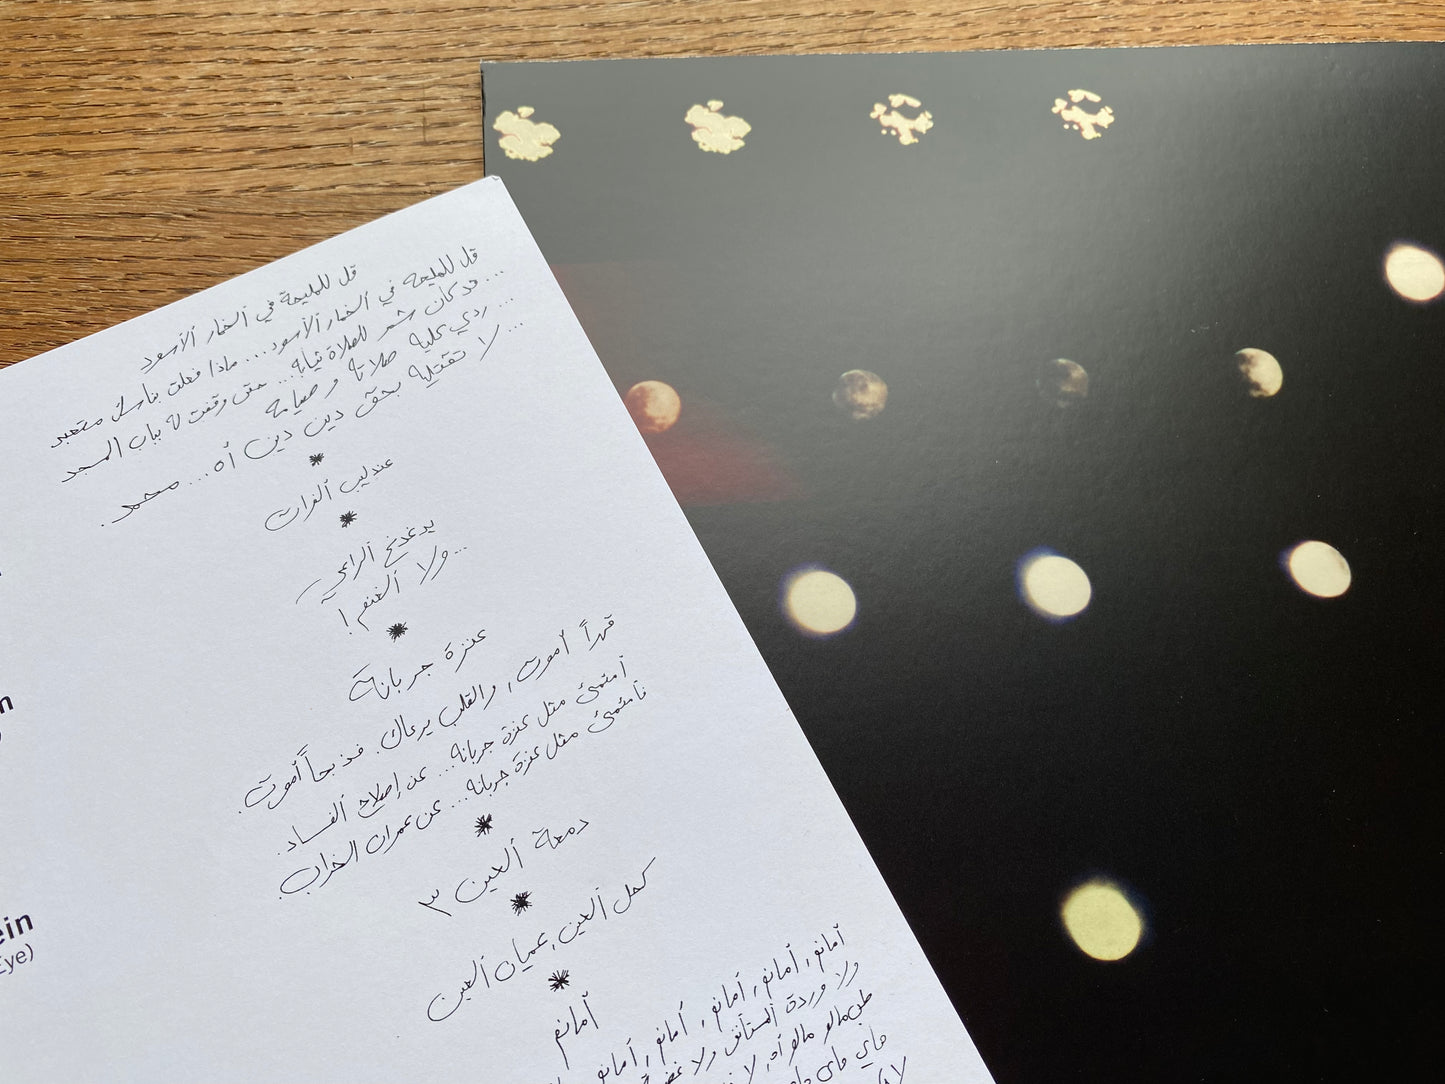 قل للمليحة في الخمار الأسود
قل للمليحة في الخمار الأسود.... ماذا فعلت بناسك متعبد
... قد كان شمر للصلاة ثيابه... حتى وقفت له بباب المسجد
... ردي عليه صلاته وصيامه
... لا تقتليه بحق دين دين أه... محمد.
*
عندليب الفرات
*
يدغدغ الراعي
... ولا الغنم!
*
عنزة جربانة
قهراً أموت, والقلب يرعاك. فذبحاً أموت.
أمئمئ مثل عنزة جربانة... عن إصلاح الفساد.
نأمئمئ مثل عنزة جربانة... عن عمران الخراب.
*
دمعة العين ٣
*
كحل العين, عميان العين
*
أمانو
أمانو, أمانو, أمانو, أمانو, أمانو
ولا وردة ولا
مالو مالو أه, لا
لا
n
ein
Eye)